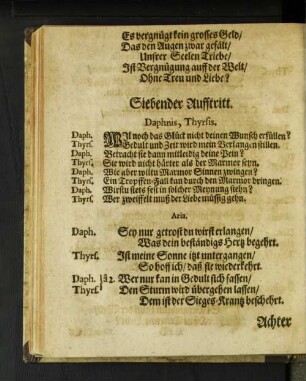 Es vergnügt kein grosses Geld/
Das den Augen zwar gefält/
Unsrer Seelen Triebe/
Ist Vergnügung auff der Welt/
Ohne Treu und Liebe?
Siebender Aufftritt.
Daphnis, Thyrsis.
Daph. Wil noch das Glück nicht deinen Wunsch erfüllen?
Thyrs. Gedult und Zeit wird mein Verlangen stillen.
Daph. Betracht sie dann mitleidig deine Pein?
Thyrs. Sie wird nicht härter als der Marmor seyn.
Daph. Wie aber wiltu Marmor Sinnen zwingen?
Thyrs. Ein Tropffen-Fall kan durch den Marmor dringen.
Daph. Wirstu stets fest in solcher Meynung stehn?
Thyrs. Wer zweiffelt muß der Liebe müssig gehn.
Aria.
Daph. Sey nur getrost du wirst erlangen/
Was dein beständigs Hertz begehrt.
Thyrs. Ist meine Sonne itzt untergangen/
So hoff ich/ daß sie wiederkehrt.
Daph. }â2. Wer nur kan in Gedult sich fassen/
Thyrs. Den Sturm wird übergehen lassen/
Dem ist der Sieges-Krantz beschehrt.
Achter